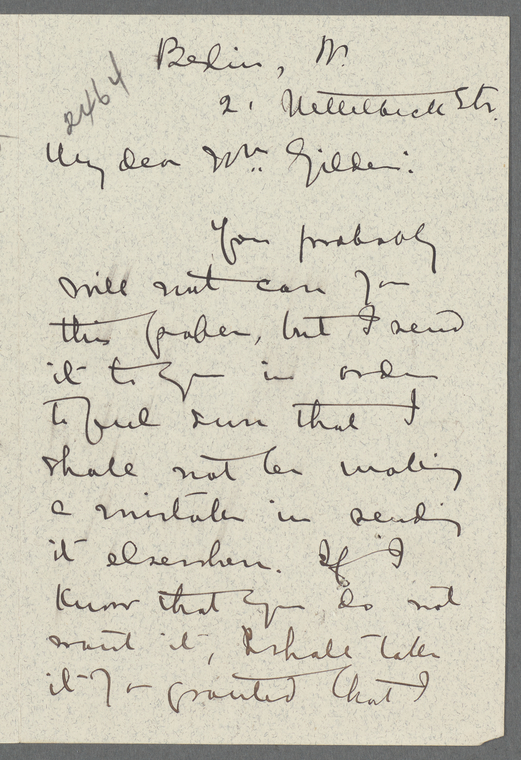 2464
Berlin, W.
2. Nettelbeck Str.
My dear Mr. Gilder:
You probably
will not care for
this paper, but I send
it to you in order
to feel sure that I
shall not be making
a mistake in sending
it elsewhere. If I
know that you do not
want it, I shall take
it for granted that I